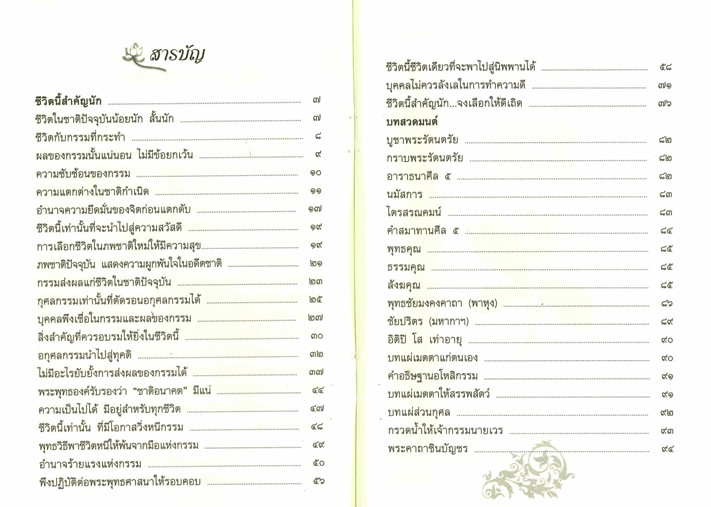 สารบัญ
ชีวิตนี้สำคัญนัก ๗
ชีวิตในชาติปัจจุบันน้อยนัก สั้นนัก ๗
ชีวิตกับกรรมที่กระทำ ๘
ผลของกรรมนั้นแน่นอน ไม่มีข้อยกเว้น ๙
ความซับซ้อนของกรรม ๑๐
ความแตกต่างในชาติกำเนิด ๑๑
อำนาจความยึดมั่นของจิตก่อนแตกดับ ๑๗
ชีวิตนี้เท่านั้นที่จะนำไปสู่ความสวัสดี ๑๙
การเลือกชีวิตในภพชาติใหม่ให้มีความสุข ๑๙
ภพชาติปัจจุบัน แสดงความผูกพันใจในอดีตชาติ ๒๑
กรรมส่งผลแก่ชีวิตในชาติปัจจุบัน ๒๓
กุศลกรรมเท่านั้นที่ตัดรอนอกุศลกรรมได้ ๒๕
บุคคลพึงเชื่อในกรรมและผลของกรรม ๒๗
สิ่งสำคัญที่ควรอบรมให้ยิ่งในชีวิตนี้ ๓๐
อกุศลกรรมนำไปสู่ทุคติ ๓๒
ไม่มีอะไรยับยั้งการส่งผลของกรรมได้ ๓๗
พระพุทธองค์รับรองว่า “ชาติอนาคต” มีแน่ ๔๔
ความเป็นไปได้ มีอยู่สำหรับทุกชีวิต ๔๗
ชีวิตนี้เท่านั้น ที่มีโอกาสวิ่งหนีกรรม ๔๘
พุทธวิธีพาชีวิตหนีให้พ้นจากมือแห่งกรรม ๔๙
อำนาจร้ายแรงแห่งกรรม ๕๐
พึงปฏิบัติต่อพระพุทธศาสนาให้รอบคอบ ๕๖
ชีวิตนี้ชีวิตเดียวที่จะพาไปสู่นิพพานได้ ๕๘
บุคคลไม่ควรลังเลในการทำความดี ๗๑
ชีวิตนี้สำคัญนัก...จงเลือกให้ดีเถิด ๗๖
บทสวดมนต์
บูชาพระรัตนตรัย ๘๒
กราบพระรัตนตรัย ๘๒
อาราธนาศีล ๕ ๘๒
นมัสการ ๘๓
ไตรสรณคมน์ ๘๓
คำสมาทานศีล ๕ ๘๔
พุทธคุณ ๘๕
ธรรมคุณ ๘๕
สังฆคุณ ๘๕
พุทธชัยมงคงคาถา (พาหุง) ๘๖
ชัยปริตร (มหากาฯ) ๘๙
อิติปิ โส เท่าอายุ ๙๐
บทแผ่เมตตาแก่ตนเอง ๙๐
คำอธิษฐานอโหสิกรรม ๙๑
บทแผ่เมตตาให้สรรพสัตว์ ๙๑
บทแผ่ส่วนกุศล ๙๒
กรวดน้ำให้เจ้ากรรมนายเวร ๙๓
พระคาถาชินบัญชร ๙๔